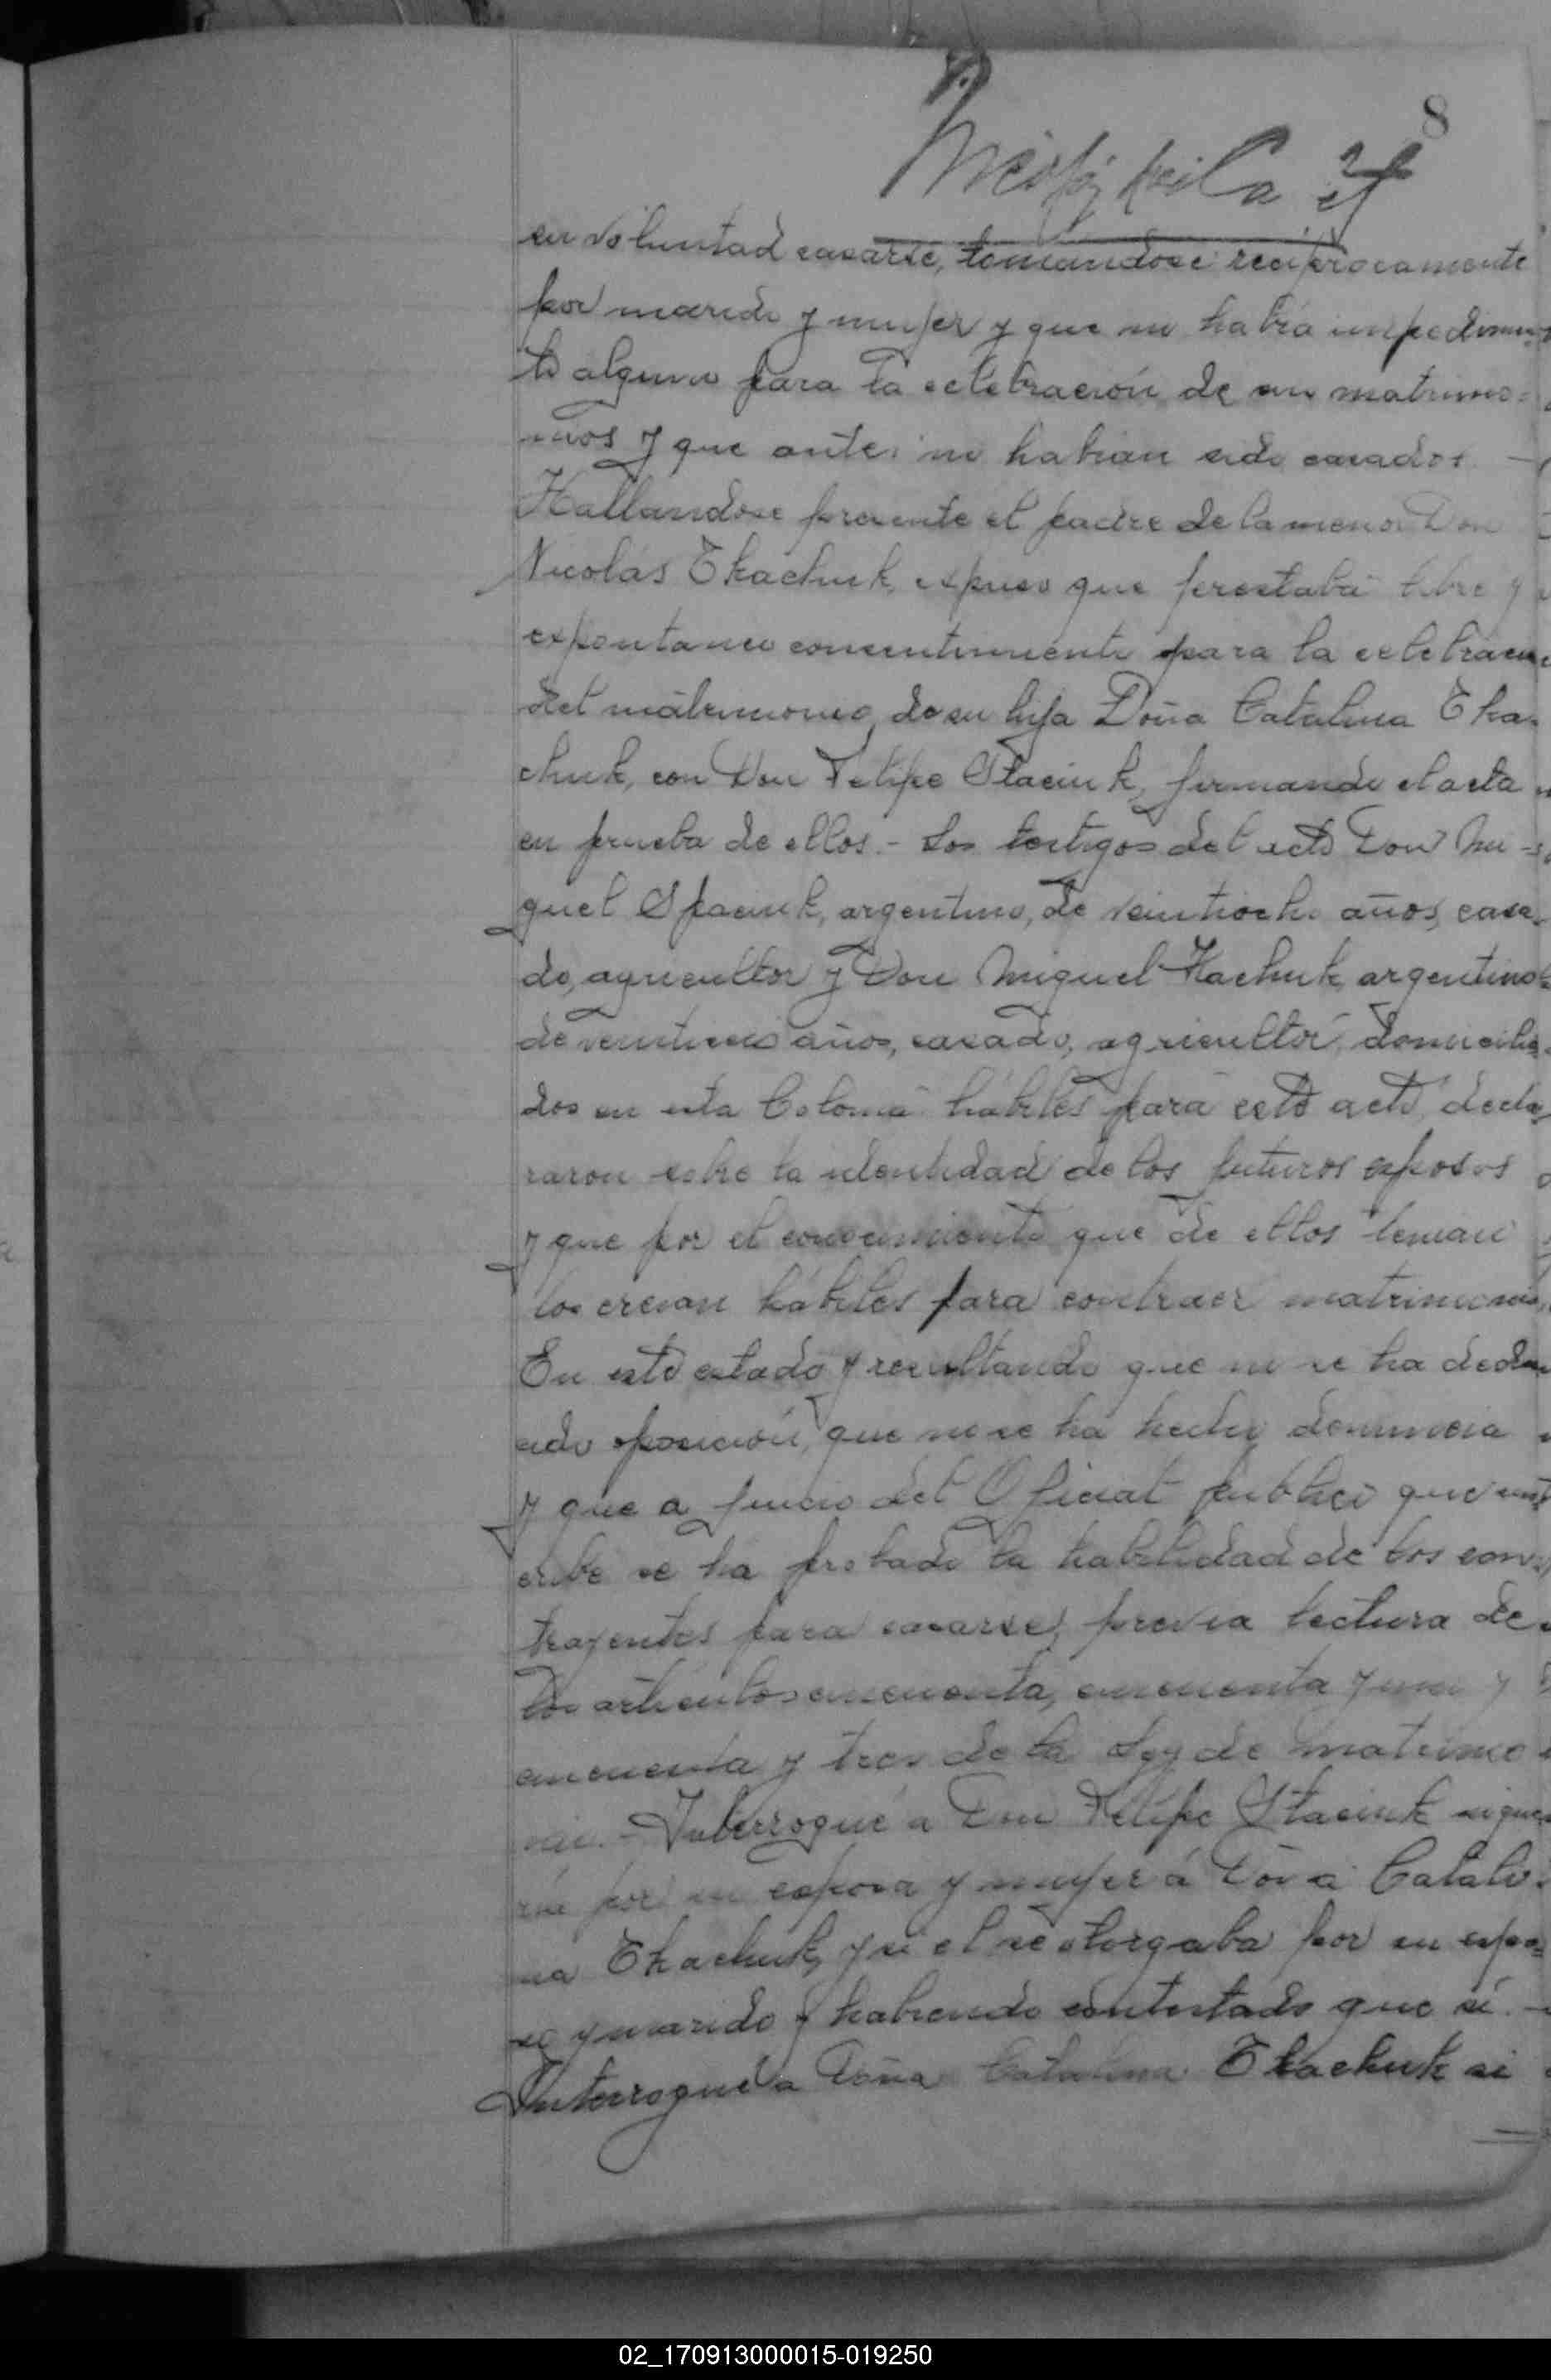 8
su voluntad casarse, tomandose reciprocamente
por marido y mujer y que no habia impedimen-
to alguno para la celebración de su matrimo-
nios y que antes no habian sido casados. —
Hallandose presente el padre de la menor Don
Nicolás Tkachuk, expuso que prestaba libre y
expontaneo consentimiento para la celebracion
del matrimonio, de su hija Doña Catalina Tka-
chuk, con Don Felipe Stasiuk, firmando el acta
en prueba de ellos. - Los testigos del acto Don Mi-
guel Spasiuk, argentino, de veintiocho años, casa-
do, agricultor y Don Miguel Kachuk, argentino
de años, casado, agricultor, domicilia-
dos en esta Colonia hábiles para este acto, decla-
raron sobre la identidad de los futuros esposos
y que por el conocimiento que de ellos tenian
los creian hábiles para contraer matrimonio,
En este estado y resultando que no se ha dedu-
cido oposición, que no se ha hecho denuncia
y que a juicio del Oficial publico que sus-
cribe se ha probado la habilidad de los con-
trayentes para casarse, previa lectura de
los articulos cincuenta, cincuenta y uno y
cincuenta y tres de la Ley de matrimo
nio. - Interrogué a Don Felipe Stasiuk si que-
ria por su esposa y mujer á Doña Catali-
na Tkachuk, y si el se otorgaba por su espo-
so y marido y habiendo contestado que si. —
Interrogué a Doña Catalina Tkachuk si
02_170913000015-019250